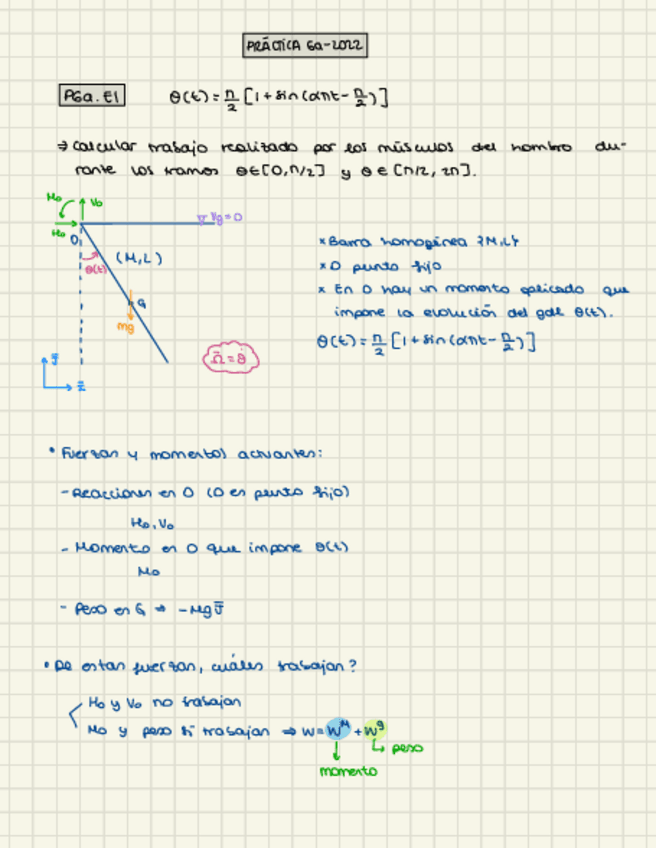 PRÁCTICA 6a-2022
P6a.E1 θ(t)=π/2 [1+sin(απt-π/2)]
⇒ Calcular trabajo realizado por los músculos del hombro du-
rante los tramos θ∈[0,π/2] y θ∈[π/2, 2π].
Mo Vo
Ho
O
Vg=0
θ(t)
(M,L)
G
mg
Ω̄=θ̇
J̄
Ī
×Barra homogénea {M,L}
×O punto fijo
× En O hay un momento aplicado que
impone la evolución del gdl θ(t).
θ(t)=π/2 [1+sin(απt-π/2)]
• Fuerzas y momentos actuantes:
- Reacciones en O (O es punto fijo)
Ho, Vo
- Momento en O que impone θ(t)
Mo
- Peso en G ⇒ -Mg J̄
• De estas fuerzas, cuáles trabajan?
Ho y Vo no trabajan
Mo y peso sí trabajan ⇒ W=Wᴹ+Wᵍ
peso
momento